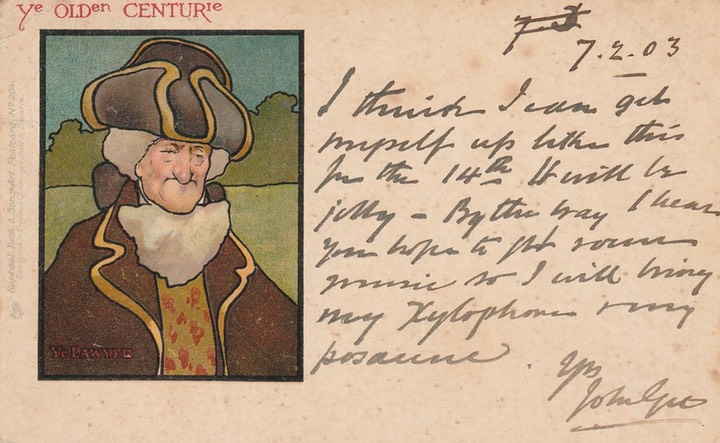 Ye OLDen CENTURIe
Ye LAWYER
Raphael Tuck & Sons' Art Postcard No
7.2.03
I think I can get
myself up like this
for the 14th It will be
jolly - By the way I hear
you hope to get some
music so I will bring
my Xylophone & my
posaune
Yrs
John